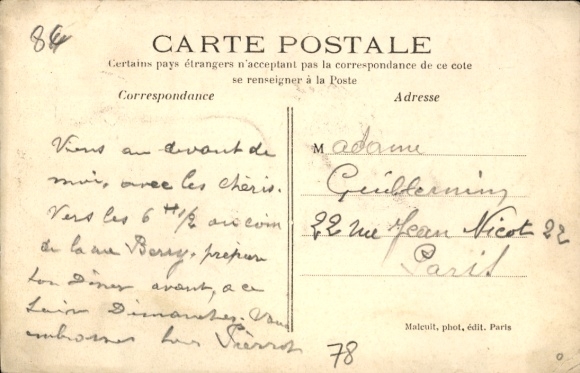 84
CARTE POSTALE
Certains pays étrangers n'acceptant pas la correspondance de ce cote
se renseigner à la Poste
Correspondance
Adresse
Viens au devant de
moi, avec les chéris.
Vers les 6 H 1/2 au coin
de la rue Berry, prépare
ton Dîner avant, a ce
Soir Dimanche. Vous
embrasse Pierrot
Madame
22 rue Jean Nicot 22
Paris
Malcuit, phot, édit. Paris
78